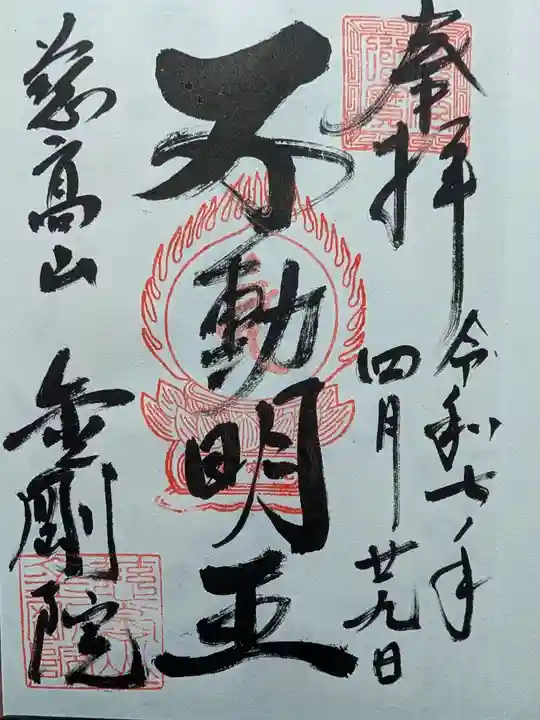 奉拝
令和七年
四月廿九日
不動明王
慈高山
金剛院